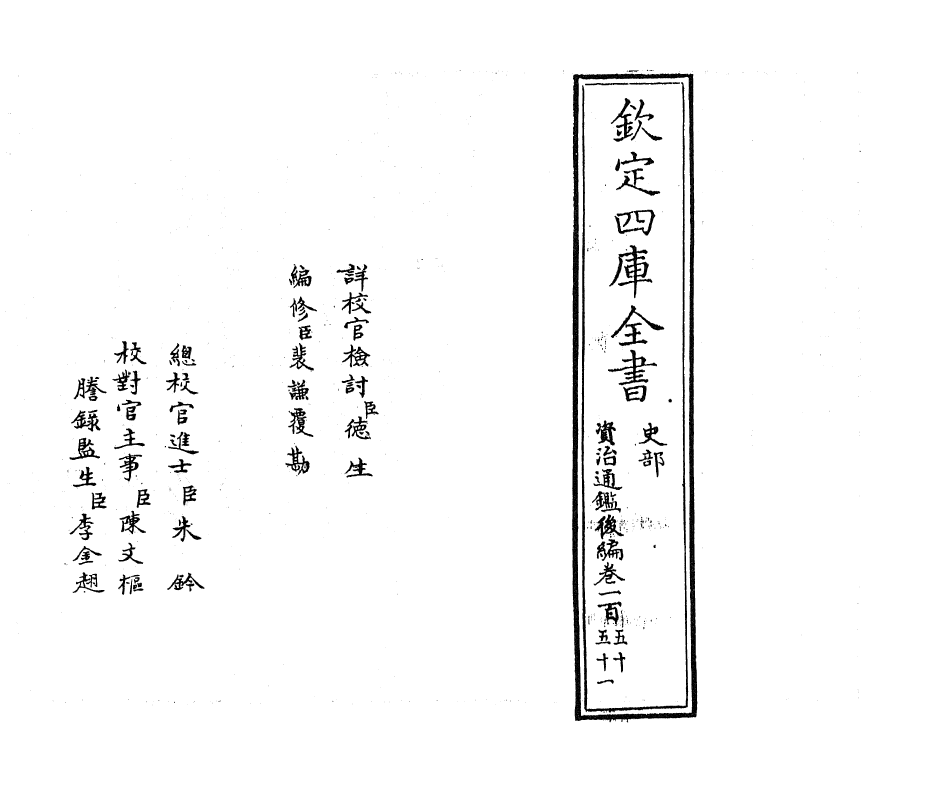 欽定四庫全書
史部
資治通鑑後編卷一百五十
五十一
詳校官檢討臣德生
編修臣裴謙覆勘
總校官進士臣朱鈐
校對官主事臣陳文樞
謄錄監生臣李金趐